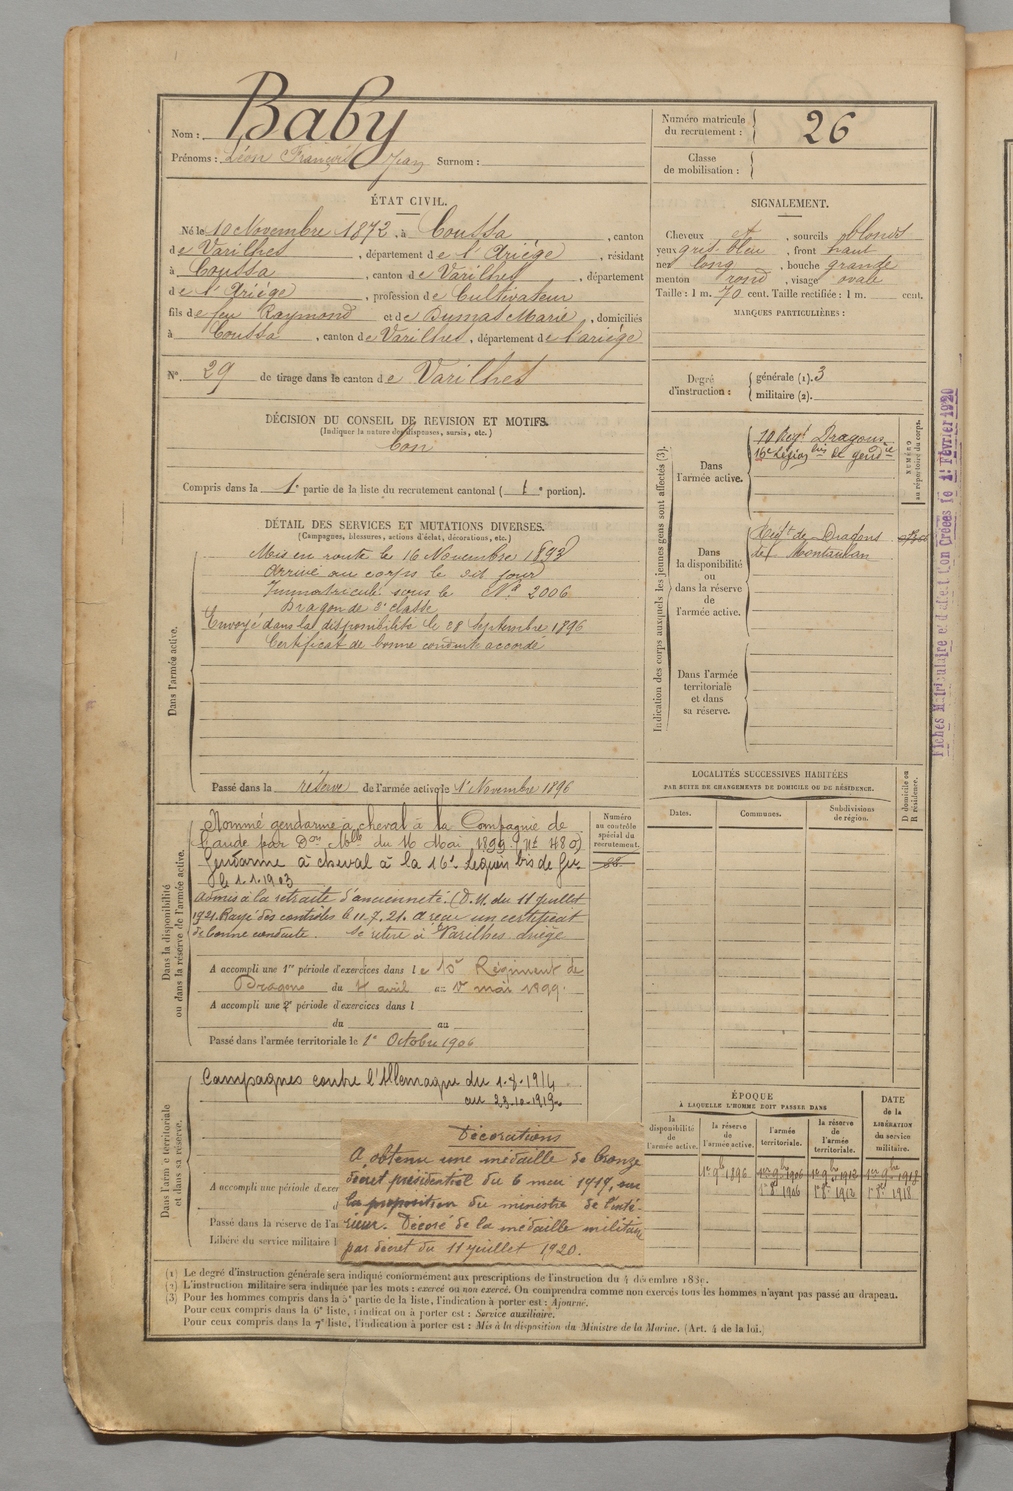 Nom : Baby
Prénoms : Léon François Jean Surnom :
Numéro matricule du recrutement : 26
Classe de mobilisation :
ÉTAT CIVIL.
Né le 10 Novembre 1872, à Coussa, canton
de Varilhes, département de l'Ariége, résidant
à Coussa, canton de Varilhes, département
de l'Ariége, profession de Cultivateur
fils de feu Raymond et de Dumas Marie, domiciliés
à Coussa, canton de Varilhes, département de l'ariége
N° 29 de tirage dans le canton de Varilhes
SIGNALEMENT.
Cheveux et, sourcils blonds
yeux gris-bleu, front haut
nez long, bouche grande
menton rond, visage ovale
Taille : 1 m. 70 cent. Taille rectifiée : 1 m. cent.
MARQUES PARTICULIÈRES :
Degré d'instruction : générale (1). 3
militaire (2).
DÉCISION DU CONSEIL DE REVISION ET MOTIFS.
(Indiquer la nature des dispenses, sursis, etc.)
bon
Compris dans la 1e partie de la liste du recrutement cantonal ( 1e portion).
DÉTAIL DES SERVICES ET MUTATIONS DIVERSES.
(Campagnes, blessures, actions d'éclat, décorations, etc.)
Dans l'armée active.
Mis en route le 16 Novembre 1893
Arrivé au corps le dit jour
Immatriculé sous le N° 2006
Dragon de 2e classe
Envoyé dans la disponibilité le 28 Septembre 1896
Certificat de bonne conduite accordé
Passé dans la réserve de l'armée active le 1er Novembre 1896
Indication des corps auxquels les jeunes gens sont affectés (3).
NUMÉRO au répertoire du corps.
Dans l'armée active.
10 Regt Dragons
16e Légion bis de gendie
Dans la disponibilité ou dans la réserve de l'armée active.
Regt de Dragons
de Montauban
Dans l'armée territoriale et dans sa réserve.
Fiches Matriculaire et d'affectation Créées le 1er Février 1920
Dans la disponibilité ou dans la réserve de l'armée active.
Numéro au contrôle spécial du recrutement.
Nommé gendarme à cheval à la Compagnie de
l'aude par Don Mlle du 16 Mai 1899 (Nt 480)
Gendarme à cheval à la 16e Légion bis de Gie
le 1.1.1903
Admis à la retraite d'ancienneté. (D.M. du 11 juillet
1921. Rayé des contrôles le 11.7.21. A reçu un certificat
de bonne conduite. Se retire à Varilhes Ariège
A accompli une 1re période d'exercices dans le 10e Régiment de
Dragons du 4 avril au 1er mai 1899.
A accompli une 2e période d'exercices dans l
du au
Passé dans l'armée territoriale le 1er Octobre 1906
LOCALITÉS SUCCESSIVES HABITÉES
PAR SUITE DE CHANGEMENTS DE DOMICILE OU DE RÉSIDENCE.
Dates. Communes. Subdivisions de région. D domicile ou R résidence.
Dans l'armée territoriale et dans sa réserve.
Campagnes contre l'Allemagne du 1-8-1914
au 23-10-1919
A accompli une période d'exer
d
Passé dans la réserve de l'ar
Libéré du service militaire l
Décorations
A obtenu une médaille de bronze
décret présidentiel du 6 mai 1919, sur
la proposition du ministre de l'inté-
rieur. Décoré de la médaille militaire
par décret du 11 juillet 1920.
ÉPOQUE
À LAQUELLE L'HOMME DOIT PASSER DANS
DATE de la LIBÉRATION du service militaire.
la disponibilité de l'armée active. la réserve de l'armée active. l'armée territoriale. la réserve de l'armée territoriale.
1er 9b 1896 1er 9bre 1906 1er 9bre 1912 1er 9bre 1918
1er 8b 1906 1er 8b 1912 1er 8b 1918
(1) Le degré d'instruction générale sera indiqué conformément aux prescriptions de l'instruction du 4 décembre 1889.
(2) L'instruction militaire sera indiquée par les mots : exercé ou non exercé. On comprendra comme non exercés tous les hommes n'ayant pas passé au drapeau.
(3) Pour les hommes compris dans la 5e partie de la liste, l'indication à porter est : Ajourné.
Pour ceux compris dans la 6e liste, l'indication à porter est : Service auxiliaire.
Pour ceux compris dans la 7e liste, l'indication à porter est : Mis à la disposition du Ministre de la Marine. (Art. 4 de la loi.)